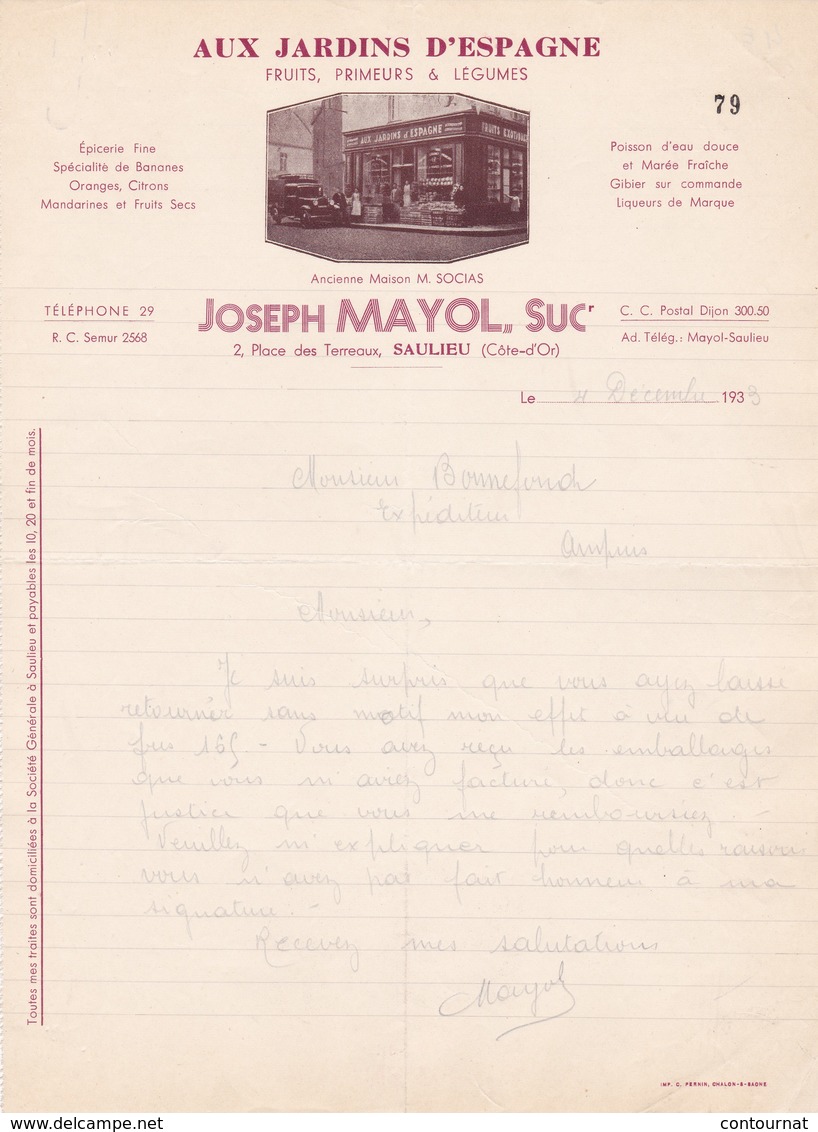 AUX JARDINS D'ESPAGNE
FRUITS, PRIMEURS & LÉGUMES
79
Épicerie Fine
Spécialité de Bananes
Oranges, Citrons
Mandarines et Fruits Secs
AUX JARDINS d'ESPAGNE
FRUITS EXOTIQUES
Poisson d'eau douce
et Marée Fraîche
Gibier sur commande
Liqueurs de Marque
Ancienne Maison M. SOCIAS
TÉLÉPHONE 29
R. C. Semur 2568
JOSEPH MAYOL, SUCr
C. C. Postal Dijon 300.50
Ad. Télég.: Mayol-Saulieu
2, Place des Terreaux, SAULIEU (Côte-d'Or)
Le 4 Décembre 1933
Toutes mes traites sont domiciliées à la Société Générale à Saulieu et payables les 10, 20 et fin de mois.
Monsieur Bonnefond
Expéditeur
Ampuis
Monsieur,
Je suis surpris que vous ayez laissé
retourner sans motif mon effet à vue de
frs 165 - Vous avez reçu les emballages
que vous m'aviez facturé, donc c'est
justice que vous me remboursiez. -
Veuillez m'expliquer pour quelles raisons
vous n'avez pas fait honneur à ma
signature. -
Recevez mes salutations
Mayol
IMP. C. PERRIN, CHALON-S-SAONE
www.delcampe.net
contournat